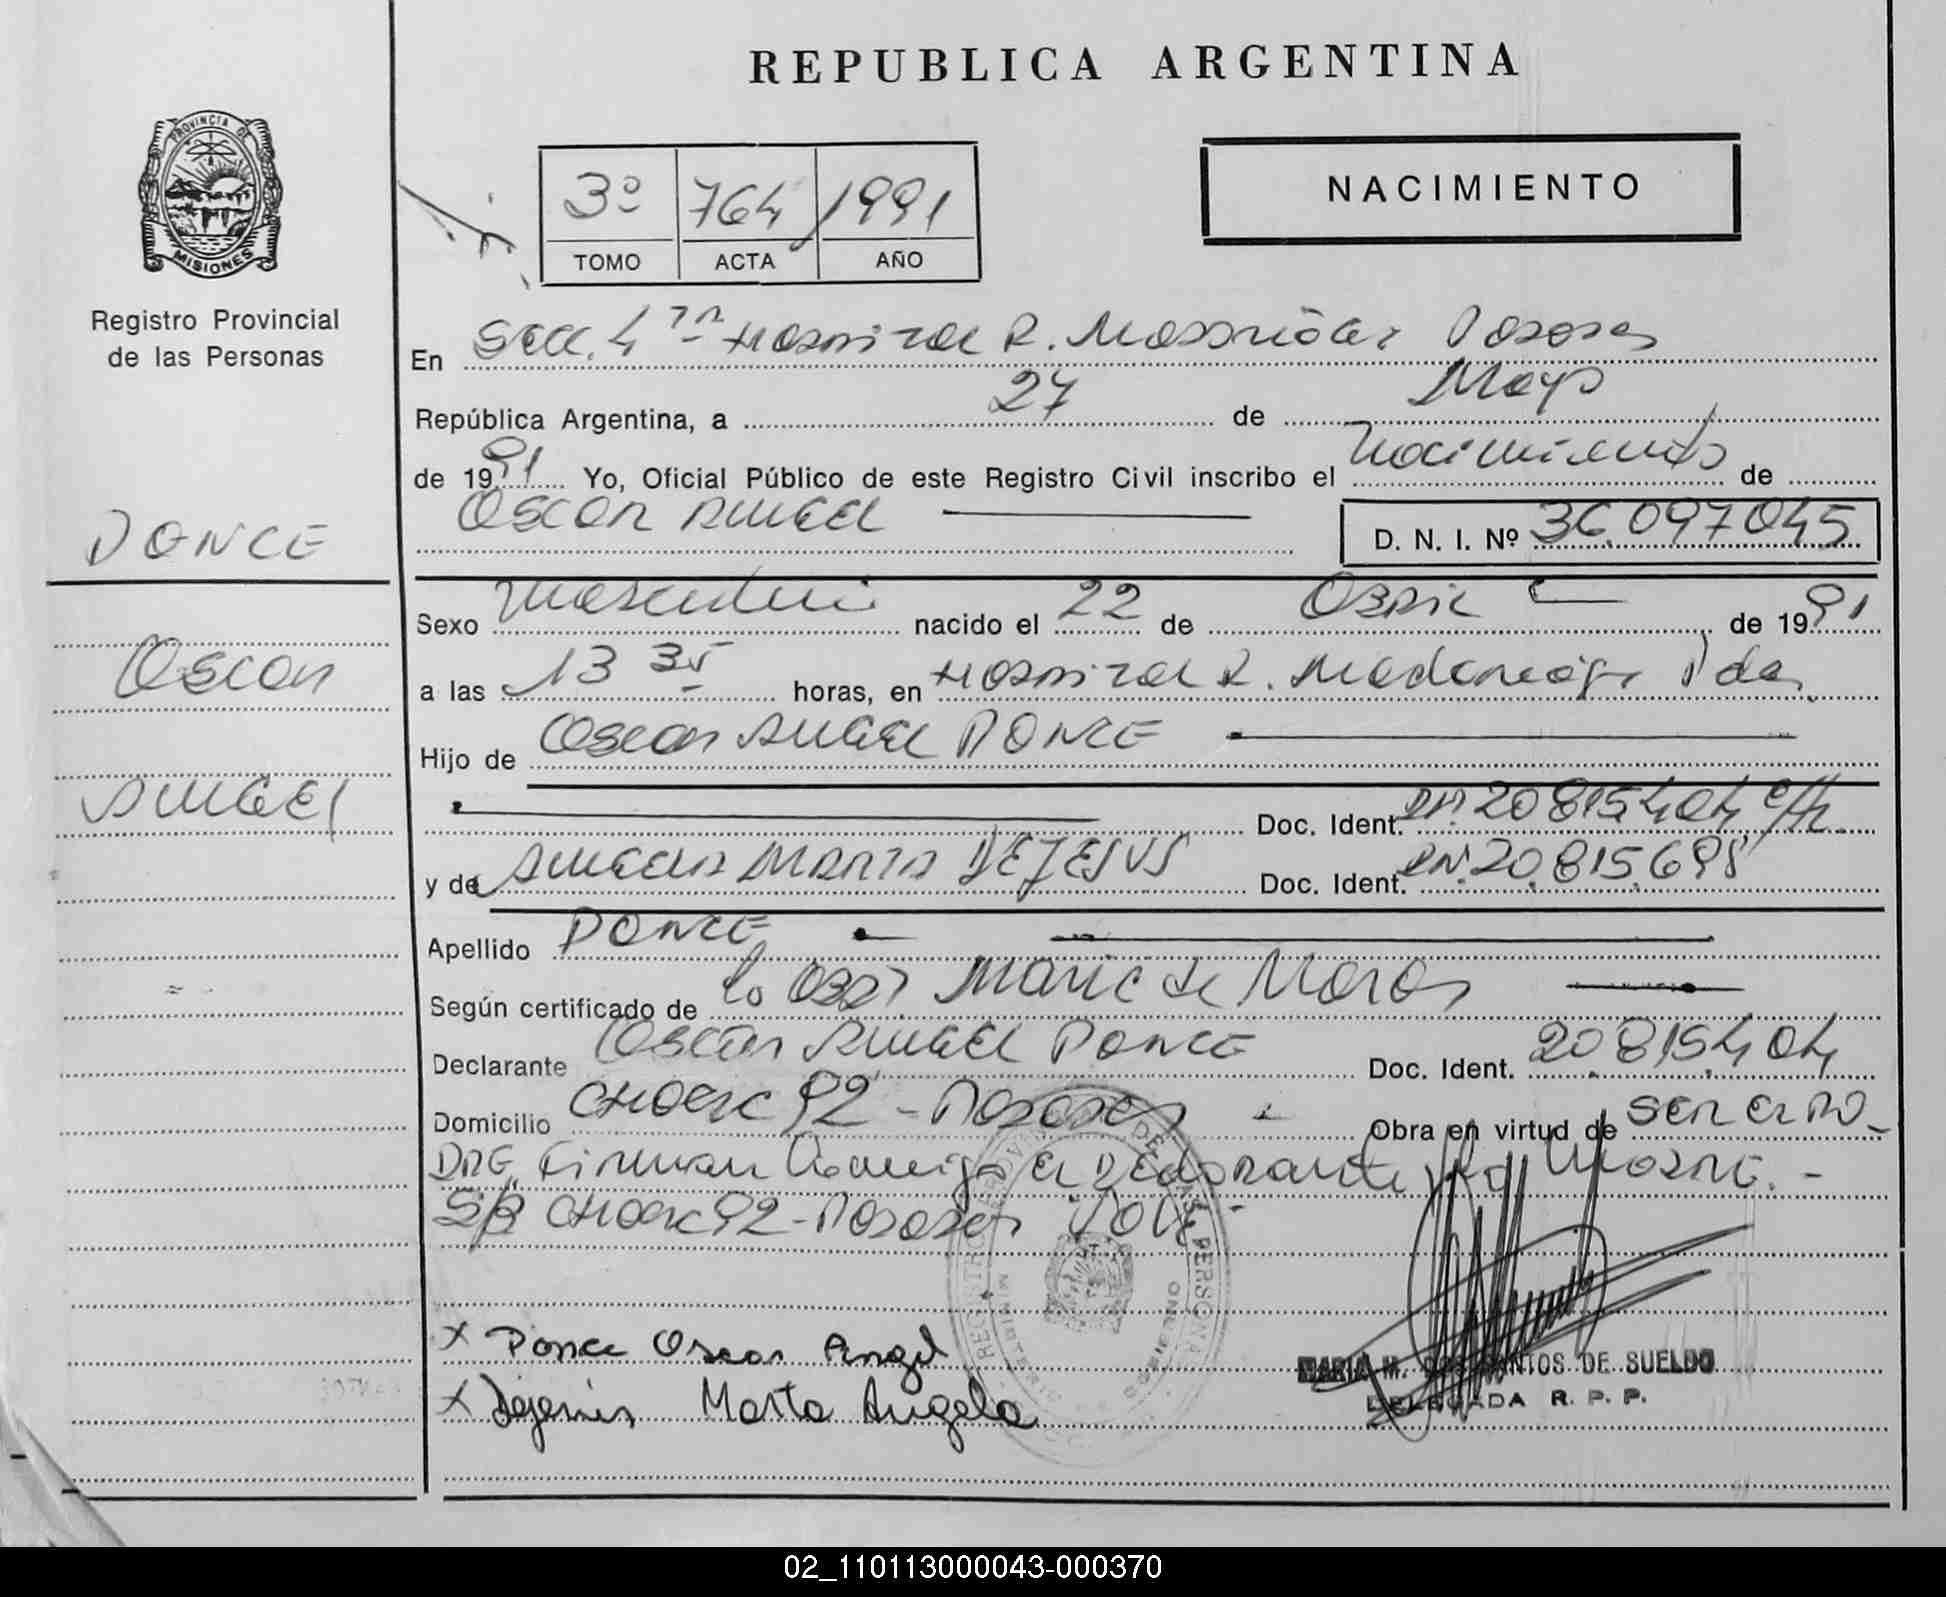 REPUBLICA ARGENTINA
PROVINCIA DE
MISIONES
Registro Provincial
de las Personas
3º 764 1991
TOMO ACTA AÑO
NACIMIENTO
En Secc. 4ta Hospital R. Madariaga Posadas
República Argentina, a 27 de Mayo
de 1991 Yo, Oficial Público de este Registro Civil inscribo el nacimiento de
PONCE
Oscar Angel
D. N. I. Nº 36.097.045
Sexo Masculino nacido el 22 de Abril de 1991
Oscar
a las 13 35 horas, en Hospital R. Madariaga Pdas
Hijo de Oscar Angel PONCE
Angel
Doc. Ident. DNI. 20.815.404
y de Angela Marta DEJESUS Doc. Ident. DNI. 20.815.698
Apellido PONCE
Según certificado de la Obst Maria de
Declarante Oscar Angel PONCE Doc. Ident. 20.815.404
Domicilio 92 - Posadas - Obra en virtud de ser el Pa-
dre, Firman Conmigo el Declarante y la Madre. -
92 - Posadas
REGISTRO PROVINCIAL DE LAS PERSONAS
MINISTERIO
MISIONES
x Ponce Oscar Angel
x Dejesus Marta Angela
MARIA M. DOS SANTOS DE SUELDO
DELEGADA R. P. P.
02_110113000043-000370